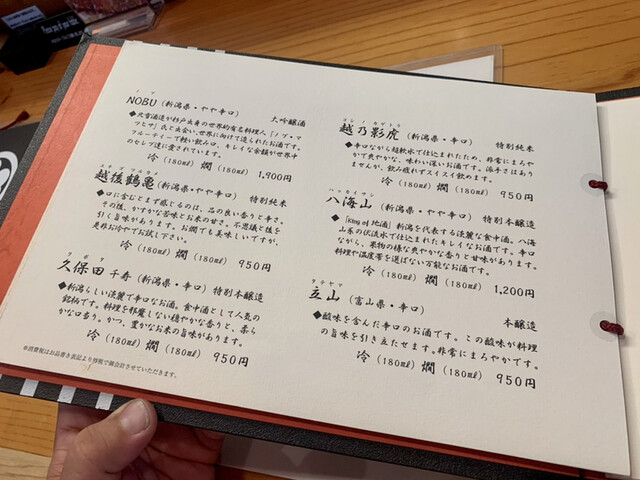 ノブ
NOBU (新潟県・やや辛口) 大吟醸酒
●北雪酒造が杉戸出身の世界的有名料理人「ノブ・マ
ツヒサ」氏と出会い、世界に向けて造られたお酒です。
フルーティーで軽い飲み口、キレイな余韻が世界中
のセレブ達に愛されています。
冷 (180㎖) 燗 (180㎖) 1,900円
越後鶴亀 (新潟県・やや辛口) 特別純米
●口に含むとまず感じるのは、品の良い香りと辛さ。
その後、かすかな苦味とお米の甘さ。不思議と後を
引く旨味があります。お燗でも美味しいですが、
是非お冷やでお試し下さい。
冷 (180㎖) 燗 (180㎖) 950円
クボタ
久保田 千寿 (新潟県・やや辛口) 特別本醸造
●新潟らしい淡麗で辛口なお酒。食中酒として人気の
銘柄です。料理を邪魔しない穏やかな香りと、柔ら
かな口香り。かつ、豊かなお米の旨味があります。
冷 (180㎖) 燗 (180㎖) 950円
※消費税はお品書き表記より別税で御会計させていただきます。
コシノカゲトラ
越乃影虎 (新潟県・辛口) 特別純米
●辛口ながら超軟水で仕込まれたため、非常にまろや
かで爽やかな、味わい深いお酒です。派手さはあり
ませんが、飲み疲れずスイスイ飲めます。
冷 (180㎖) 燗 (180㎖) 950円
ハッカイサン
八海山 (新潟県・やや辛口) 特別本醸造
●「King of 地酒」新潟を代表する淡麗な食中酒。八海
山系の伏流水で仕込まれたキレイなお酒です。辛口
ながら、果物の様な爽やかな香りと甘味があります。
料理や温度帯を選ばない万能なお酒です。
冷 (180㎖) 燗 (180㎖) 1,200円
タテヤマ
立山 (富山県・辛口) 本醸造
●酸味を含んだ辛口のお酒です。この酸味が料理
の旨味を引き立たせます。非常にまろやかです。
冷 (180㎖) 燗 (180㎖) 950円